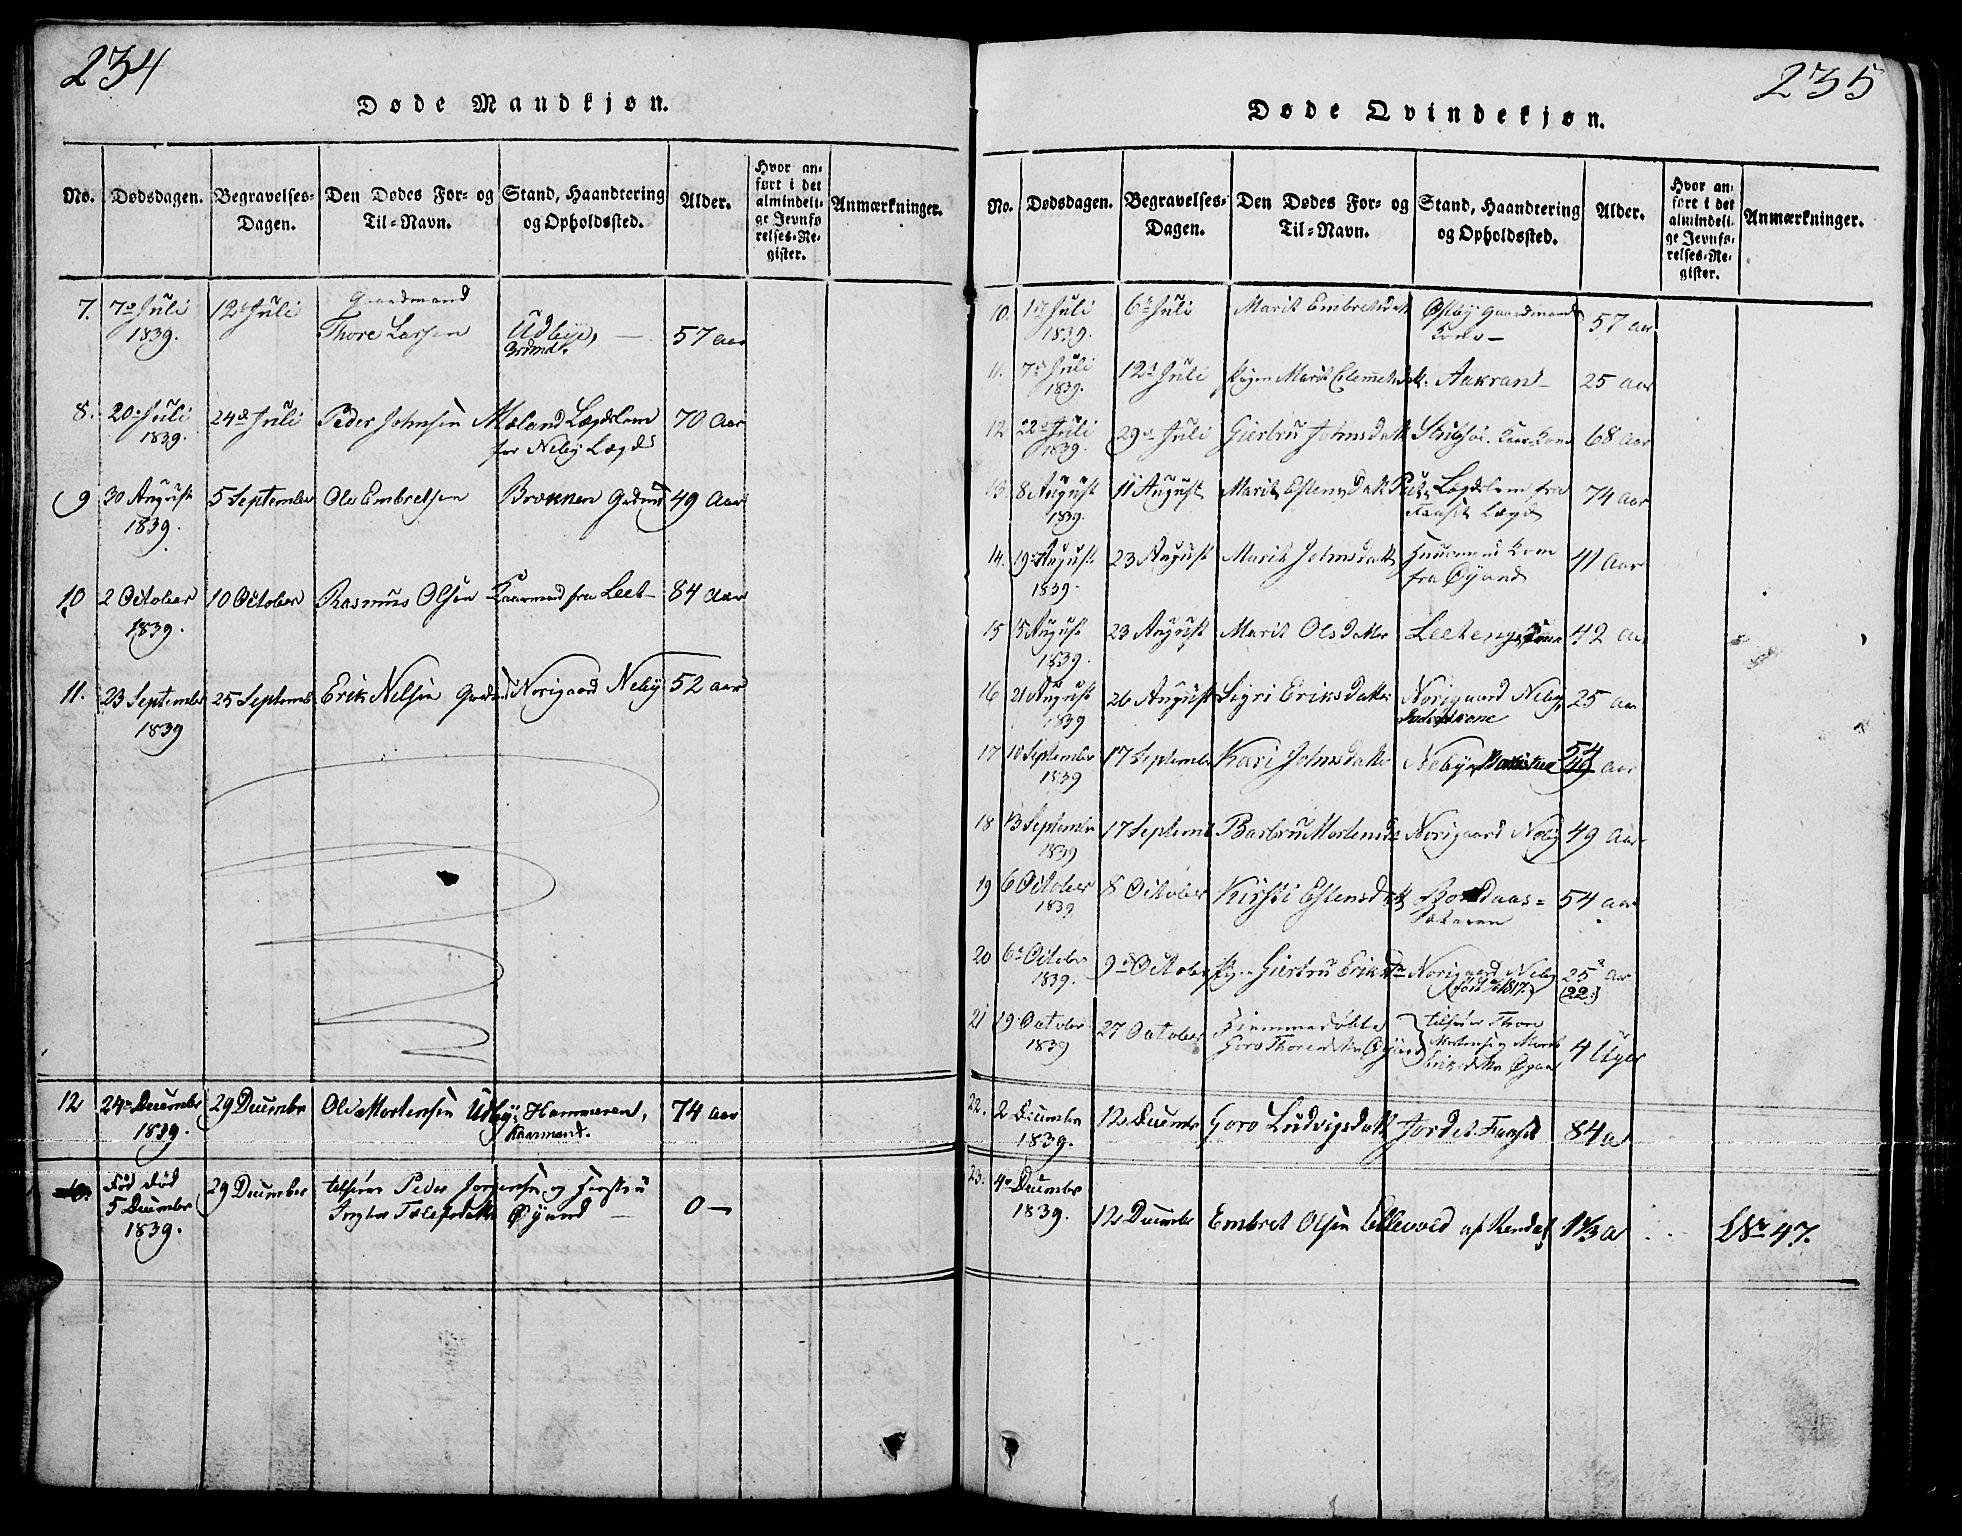 234
Døde Mandkjøn.
No. Dødsdagen. Begravelses-Dagen. Den Dødes For- og Til-Navn. Stand, Haandtering og Opholdssted. Alder. Hvor anført i det almindelige Jevnførelses-Register. Anmærkninger.
7. 7de Juli 1839. 12te Juli Gaardmand Thore Larsen Udbye, 57 aar
8. 20de Juli 1839. 24de Juli Peder Johnsen Mæland Lægdslem fra Neby Lægd 70 Aar
9 30 August 1839. 5 September Ole Embretsen Brænnen 49 Aar
10 2 October 1839. 10 October Rasmus Olsen Kaarmand fra Leet 84 Aar
11. 23 September 1839 25 September Erik Nelsen Norigaard Neby 52 aar
12 24de December 1839. 29 December Ole Mortensen Udby Hammeren, Kaarmand. 74 aar
Død fød 5 December 1839. 29 December Peder Jorgensen og Øyand 0 —
235
Døde Qvindekjøn.
No. Dødsdagen. Begravelses-Dagen. Den Dødes For- og Til-Navn. Stand, Haandtering og Opholdssted. Alder. Hvor anført i det almindelige Jevnførelses-Register. Anmærkninger.
10. 1ste Juli 1839. 6te Juli Marit Embretsdatt Østby Gaardmands Kone 57 aar
11. 7de Juli 1839. 12te Juli Pigen Marit Aakran 25 aar
12 22de Juli 1839. 29de Juli Giertru Johnsdatt 68 aar
13. 8 August 1839. 11 August Marit Estensdatt Lægdslem fra Faaset Lægd 74 aar
14. 19de August 1839. 23 August Marit Johnsdatt Kone fra Øyand 41 aar
15 15 August 1839. 23 August Marit Olsdatter Leeteng 42 aar
16 21 August 1839 26 August Sigri Eriksdatter Norigaard Neby 25 aar
17 10 September 1839 17 September Kari Johnsdatter Neby 54 aar
18 13 September 1839 17 September Barbru Mortensd Norigaard Neby 49 Aar
19 6 October 1839 8 October Kirsti Estensdatt 54 aar
20 6te October 1839. 9de October Giertru Eriksd Norigaard Neby (født 1817.) 25? aar (22.)
21 19 October 1839 27 October Hjemmedøbte Goro Thoresdatter Øyand Thore Mortensen og Marit Øyan 4 Uger
22. 2 December 1839. 12 December Goro Ludvigsdatt Jordet Faaset 84 a
23. 4de December 1839. 12 December Embret Olsen Ellevold af Rendal 1 1/3 a No 47.